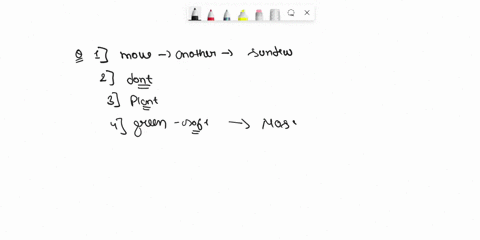 Q 1] move → another → sundew
2] dont
3] Plant
4] green - soft → Mos